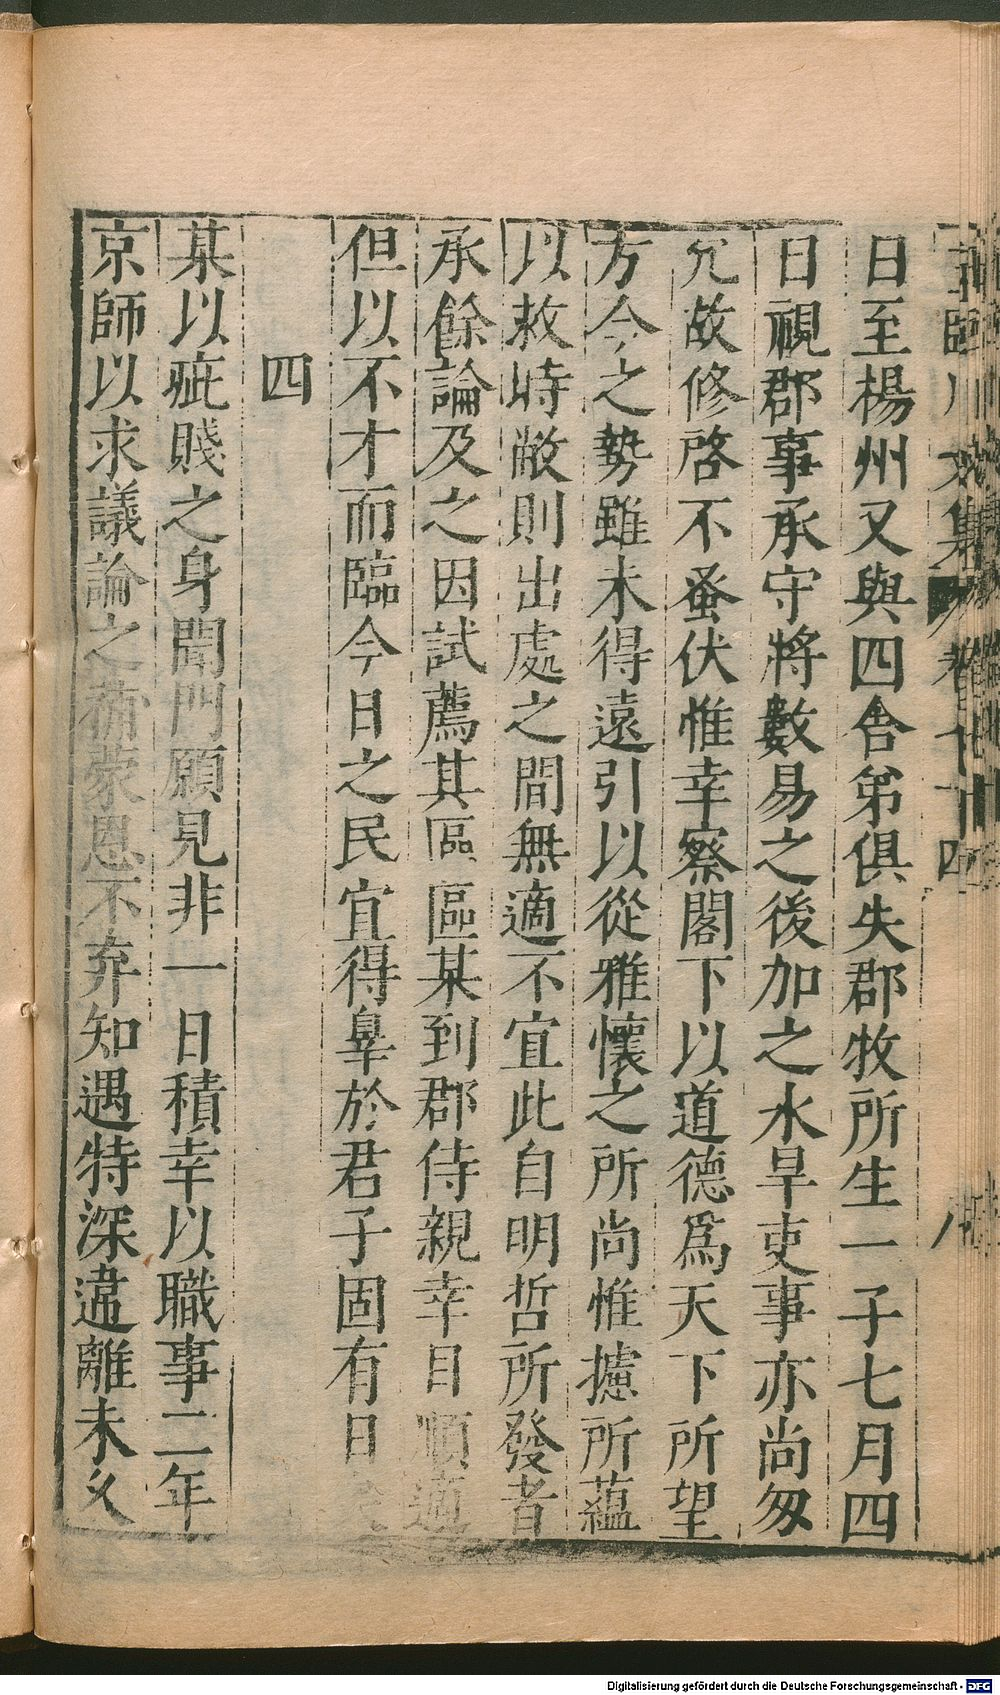 日至楊州又與四舎弟俱失郡牧所生一子七月四
日視郡事承守將數易之後加之水旱吏事亦尚匆
冗故修啓不蚤伏惟幸察閣下以道德爲天下所望
方今之勢雖未得遠引以從雅懷之所尚惟攄所蘊
以救時敝則出處之間無適不宜此自明哲所發者
承餘論及之因試薦其區區某到郡侍親幸自順適
但以不才而臨今日之民宜得辠於君子固有日
四
某以疵賤之身聞門願見非一日積幸以職事二年
京師以求議論之補蒙恩不弃知遇特深違離未久
Digitalisierung gefördert durch die Deutsche Forschungsgemeinschaft - DFG